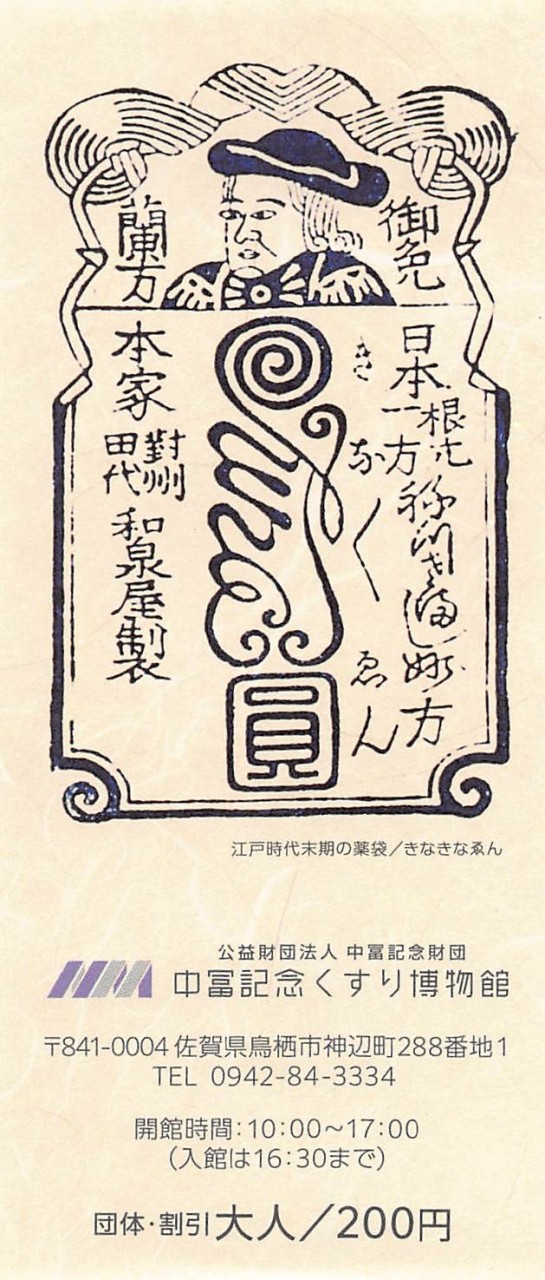 御免
蘭方
日本一方
根元
妙方
きなくゑん
圓
本家
對州
田代
和泉屋製
江戸時代末期の薬袋／きなきなゑん
公益財団法人 中冨記念財団
中冨記念くすり博物館
〒841-0004 佐賀県鳥栖市神辺町288番地1
TEL 0942-84-3334
開館時間：10：00～17：00
（入館は16：30まで）
団体・割引 大人／200円